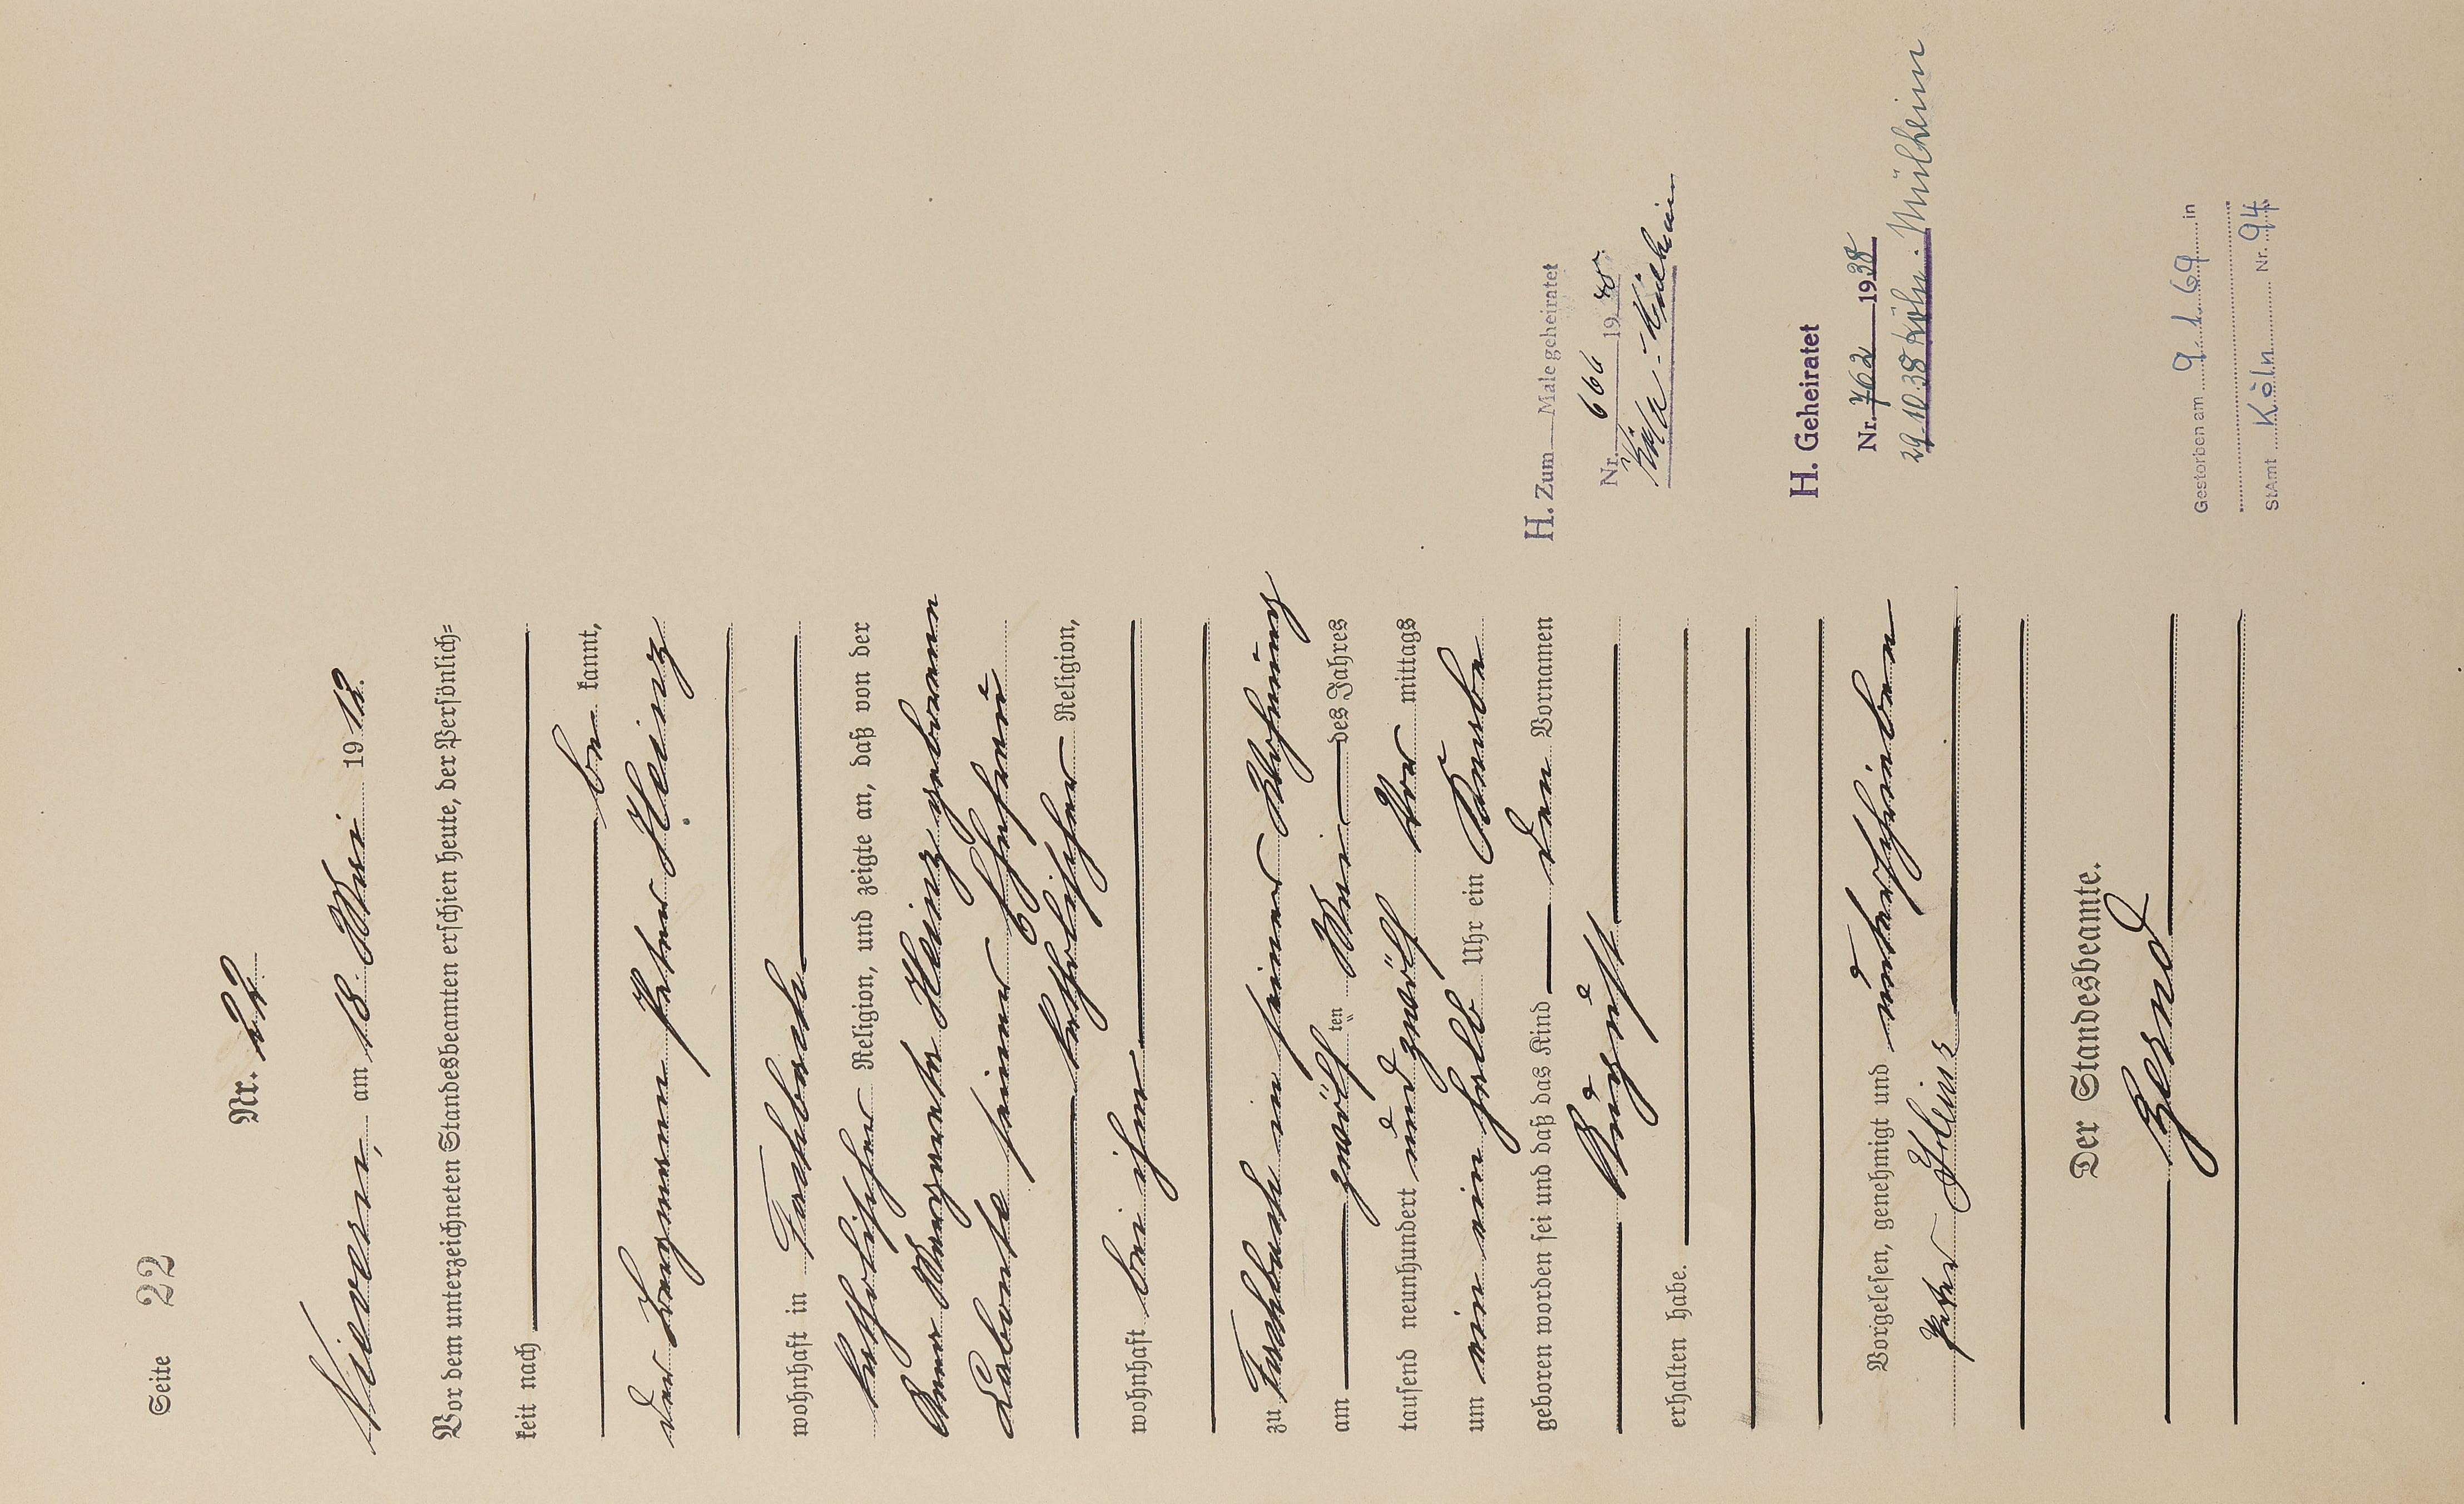 Seite 22
Nr. 22.
Nievern, am 13. Mai 1912.
Vor dem unterzeichneten Standesbeamten erschien heute, der Persönlich-
keit nach
be kannt,
der Bergmann Peter Heinz
wohnhaft in Fachbach
katholischer Religion, und zeigte an, daß von der
Anna Margareta Heinz geborenen
Labonte seiner Ehefrau
katholischer Religion,
wohnhaft bei ihm
zu Fachbach in seiner Wohnung
am zwölf ten Mai des Jahres
tausend neunhundert und zwölf Vor mittags
um ein ein halb Uhr ein Knabe
geboren worden sei und daß das Kind den Vornamen
August
erhalten habe.
Vorgelesen, genehmigt und unterschrieben
Peter Heinz
Der Standesbeamte.
H. Zum Male geheiratet
Nr. 666 19
Köln-Mülheim
H. Geheiratet
Nr. 702 1938
29.10.38 Köln-Mülheim
Gestorben am 9.1.69 in
StAmt Köln Nr. 94